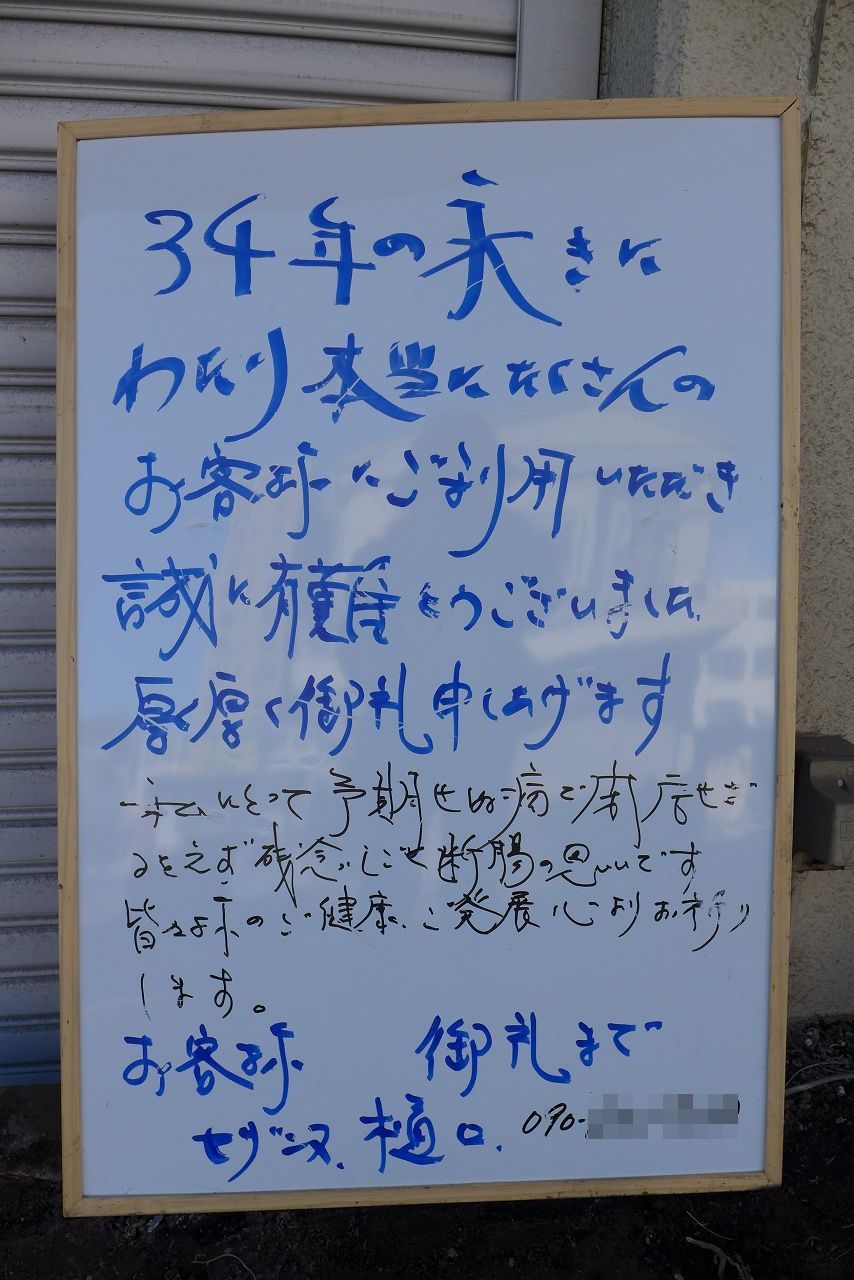 34年の永きに
わたり本当にたくさんの
お客様にご利用いただき
誠に有難うございました.
厚く厚く御礼申しあげます
私にとって予期せぬ病で閉店せざ
るをえず残念しごく断腸の思いです
皆々様のご健康、ご発展心よりお祈り
します。
お客様 御礼まで
セザンヌ、樋口. 090-